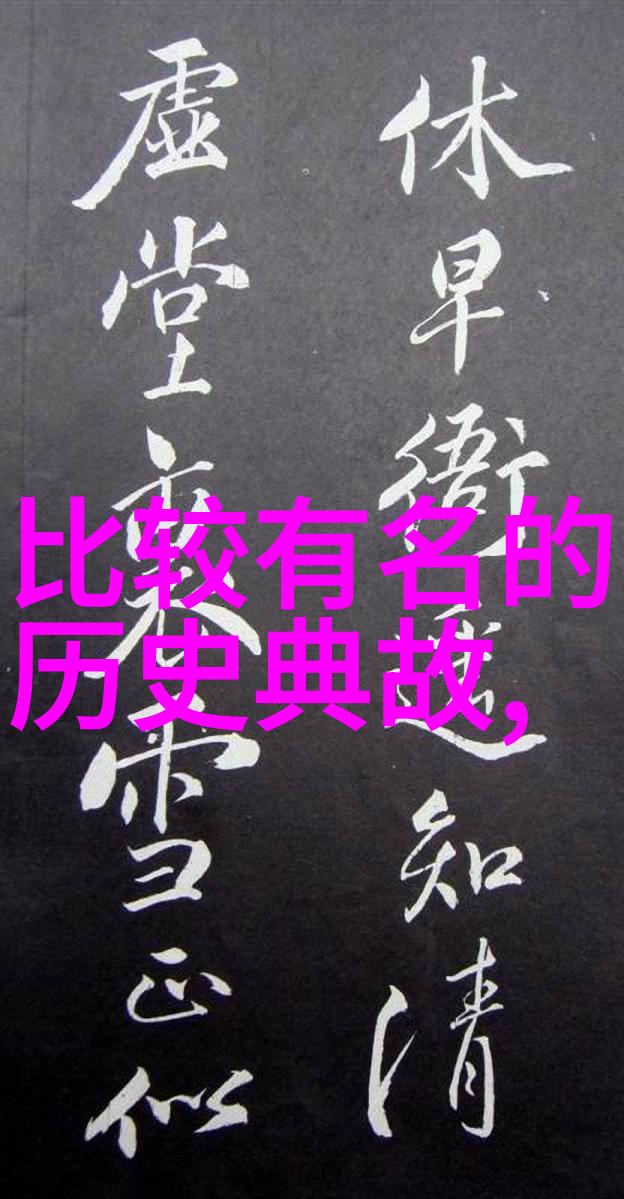 比较有名的
历史典故,
休早衙知清
虚堂雪正似